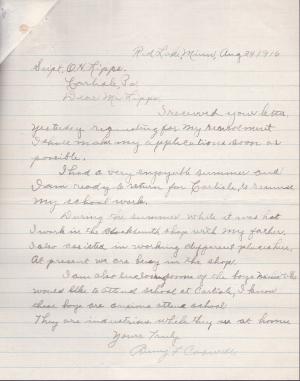 Red Lake, Minn, Aug 24 1916
Supt. O.H. Lipps.
Carlisle Pa.
Dear Mr Lipps.
I received your letter
Yesterday regarding for my reenrolment
I have made my application soon as
possible.
I had a very enjoyable summer and
I am ready to return for Carlisle, to resume
my school work.
During the summer while it was hot
I work in the Blacksmith shop with my father.
I also assisted in working different places
At present we are busy in the shop.
I am also enclosing some of the boys names who
would like to attend school at Carlisle, I know
these boys are anxious attend school
They are industrious while they are at home
Yours Truly
Benny